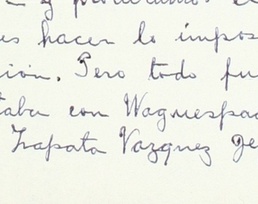 y procuramos
es hacer lo impos
ción. Pero todo fu
taba con Waguespac
Zapata Vazquez ge